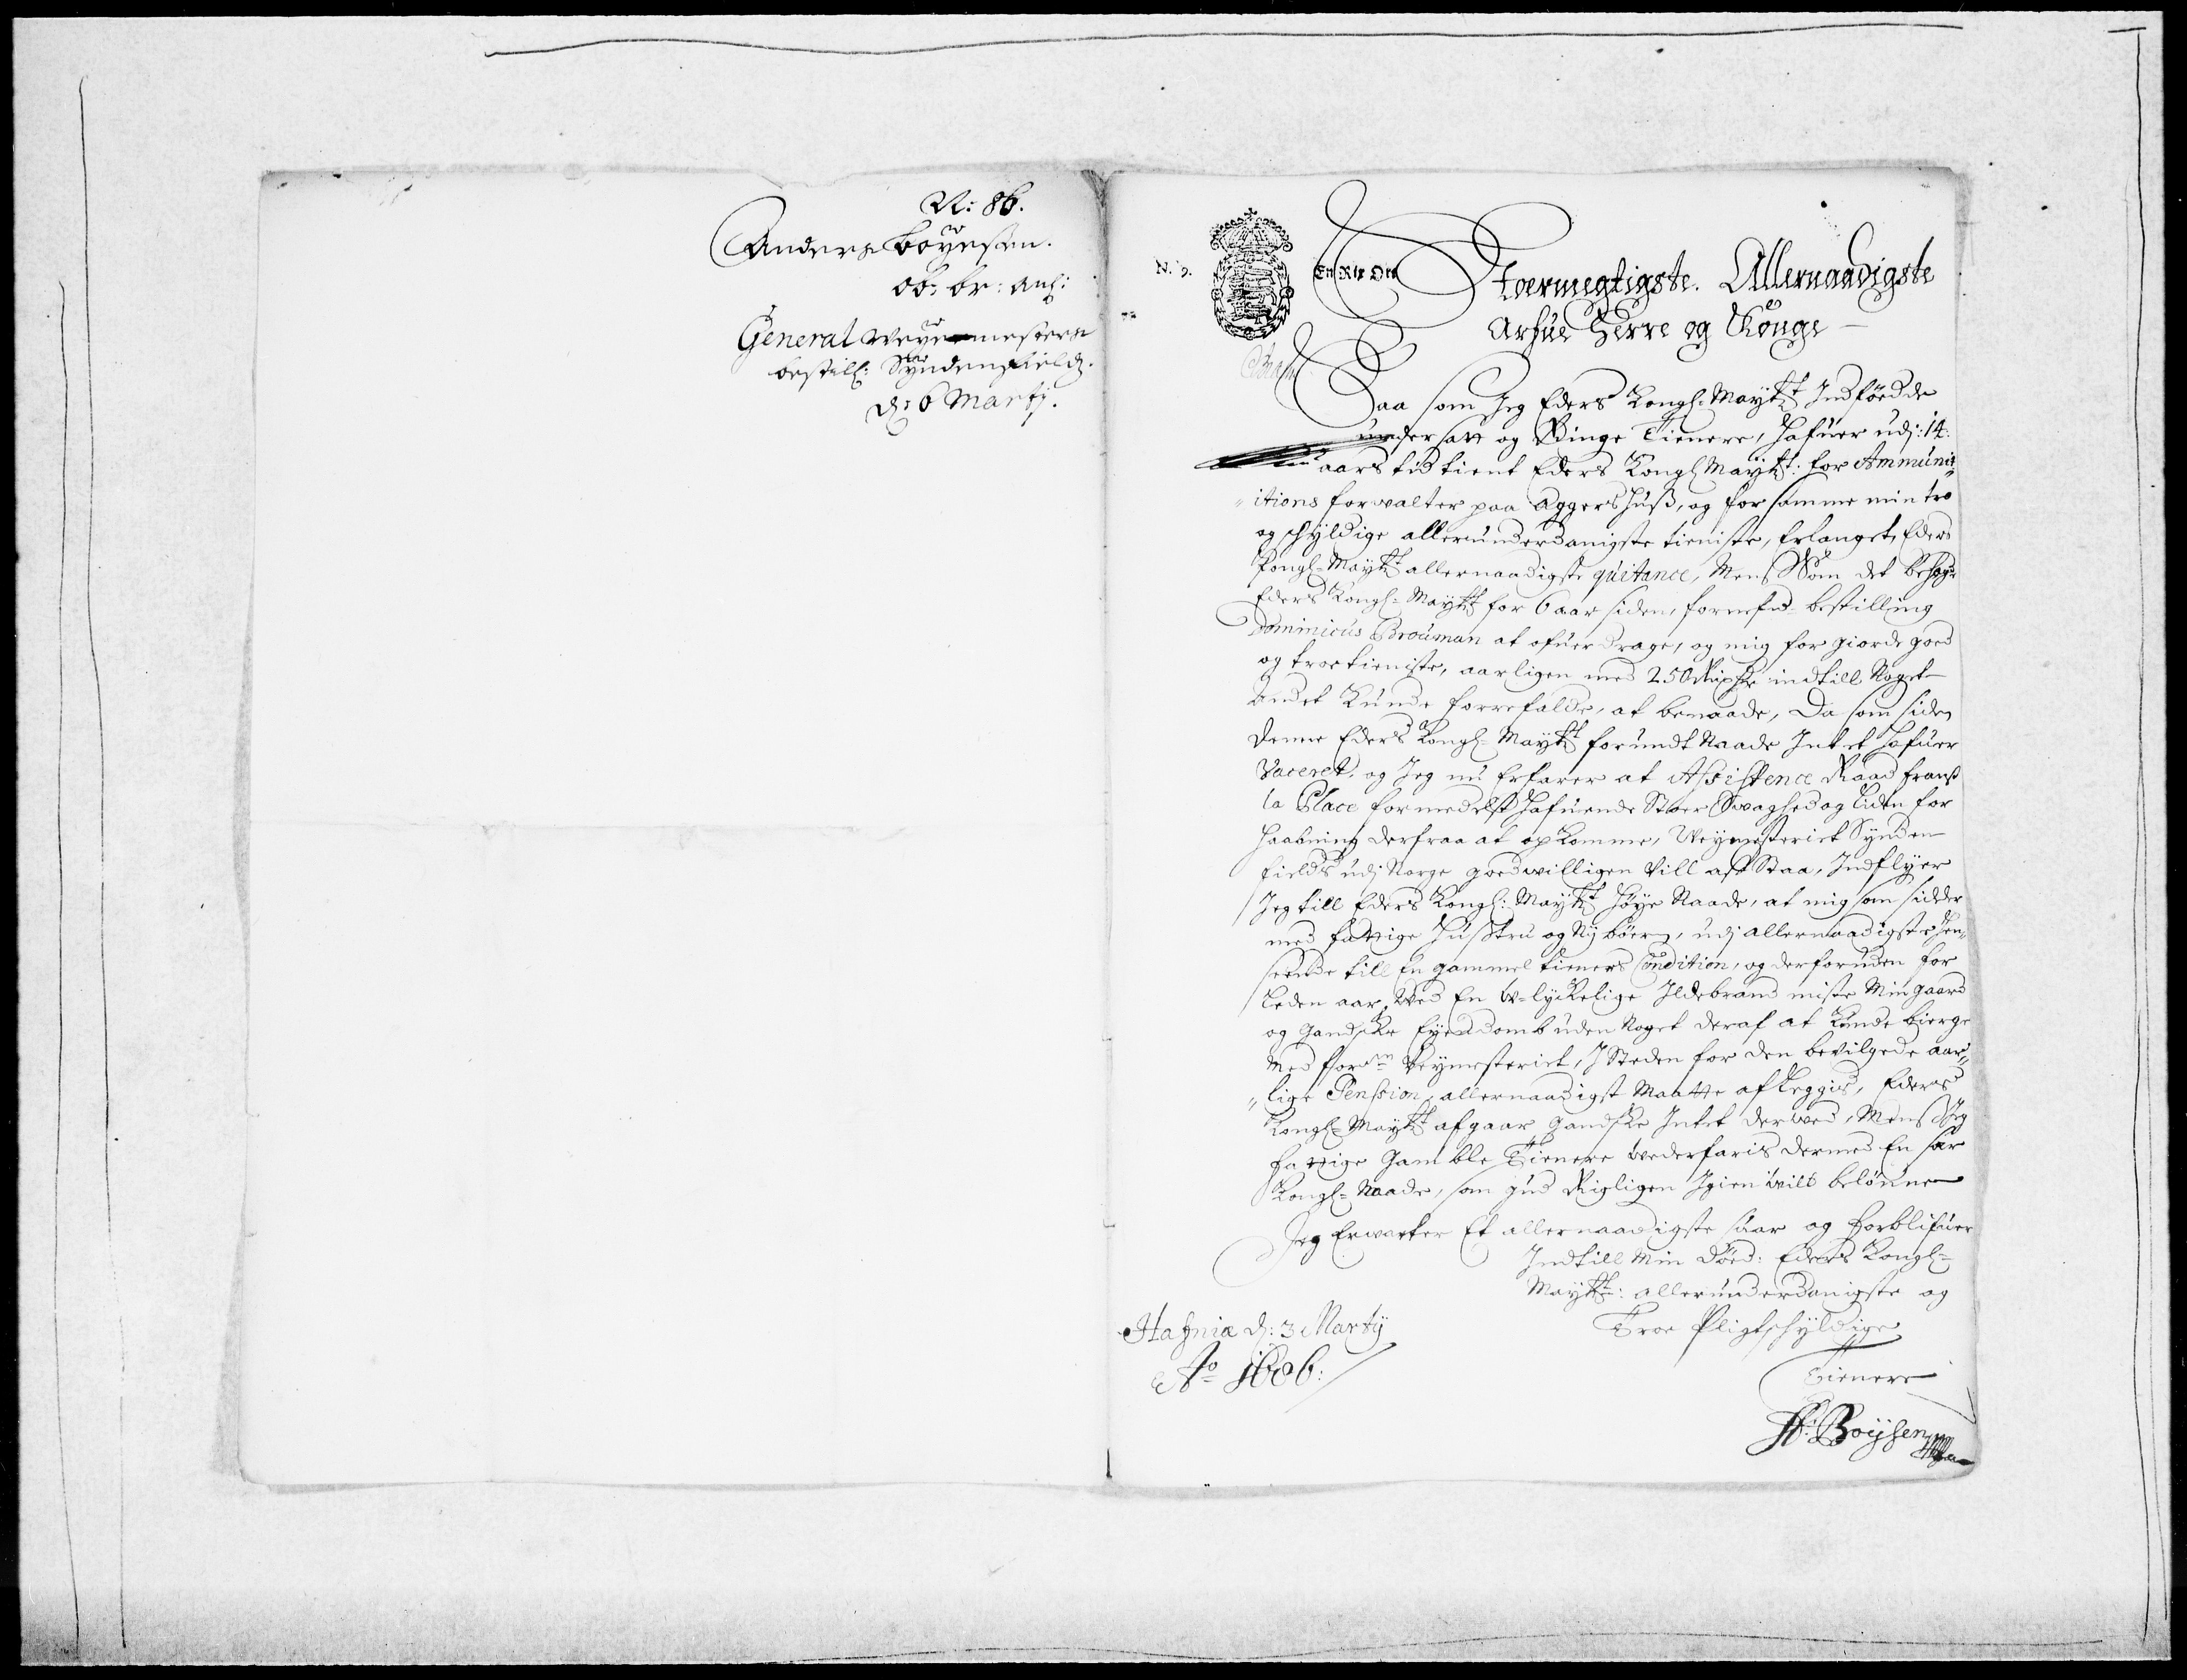 N: 86.
Anders Boyesen.
ob: br: anl:
General Weyemesters
bestill: Syndenfields.
d: 6 Martij.
N. 9.
En Rix Ort
Stoermegtigste. Allernaadigste
Arfue Herre og Konge
Saa som Jeg Eders Kongl: Maytt Indfödde
undersatt og Ringe Tienere, hafuer udj: 14.
aars tid tient Eders Kongl Maytt: for Ammuni„
„itions forwalter paa Aggershuß, og for samme min tro
og schyldige allerunderdanigste tieniste, Erlanget, Eders
Kongl= Maytt allernaadigste quitance, Mens Som det behage
Eders Kongl= Maytt for 6 aar siden, fornefnd= bestilling
Dominicus Brouman at ofuerdrage, og mig for giorde goed
og troe tieniste, aarligen med 250 Rixdr indtill Noget
andet Kunde forrefalde, at benaade, Da som siden
denne Eders Kongl= Maytt forundt Naade Intet hafuer
Vaceret, og Jeg nu Erfarer at Assistence Raad Franß
la Place formedelst hafuende Stoer Swaghed og liden for
haabning derfraa at opkomme, Weymesteriet Synden
fields udj Norge goedwilligen Vill aff Staa, Indflyer
Jeg till Eders Kongl: Maytt høye Naade, at mig som sidder
med fattige Hustru og Nj börn, udj allernaadigste hen„
seende till En gammel tieners Condition, og derforuden for
leden aar, Wed En W=lyckelige Ildebrand miste Min gaard
og gandske Eyendomb uden Noget deraf at Kunde bierge
Med forsn Veymesteriet, J Steden for den bevilgede aar„
„lige Pension, allernaadigst Maatte aflegges, Eders
Kongl= Maytt afgaar gandske Intet derwed, Mens Jeg
fattige Gamble Tienere wederfaris dermed En sær
Kongl= Naade, som gud Rigligen Igien wilt belönne
Jeg Erwarter Et allernaadigste suar og forblifuer
Indtill Min Döed: Eders Kongl=
Maytts: allerunderdanigste og
Troe Pligtschyldige
Tienere
A: Boysen
Hafniæ d: 3 Martij
Ao 1686: